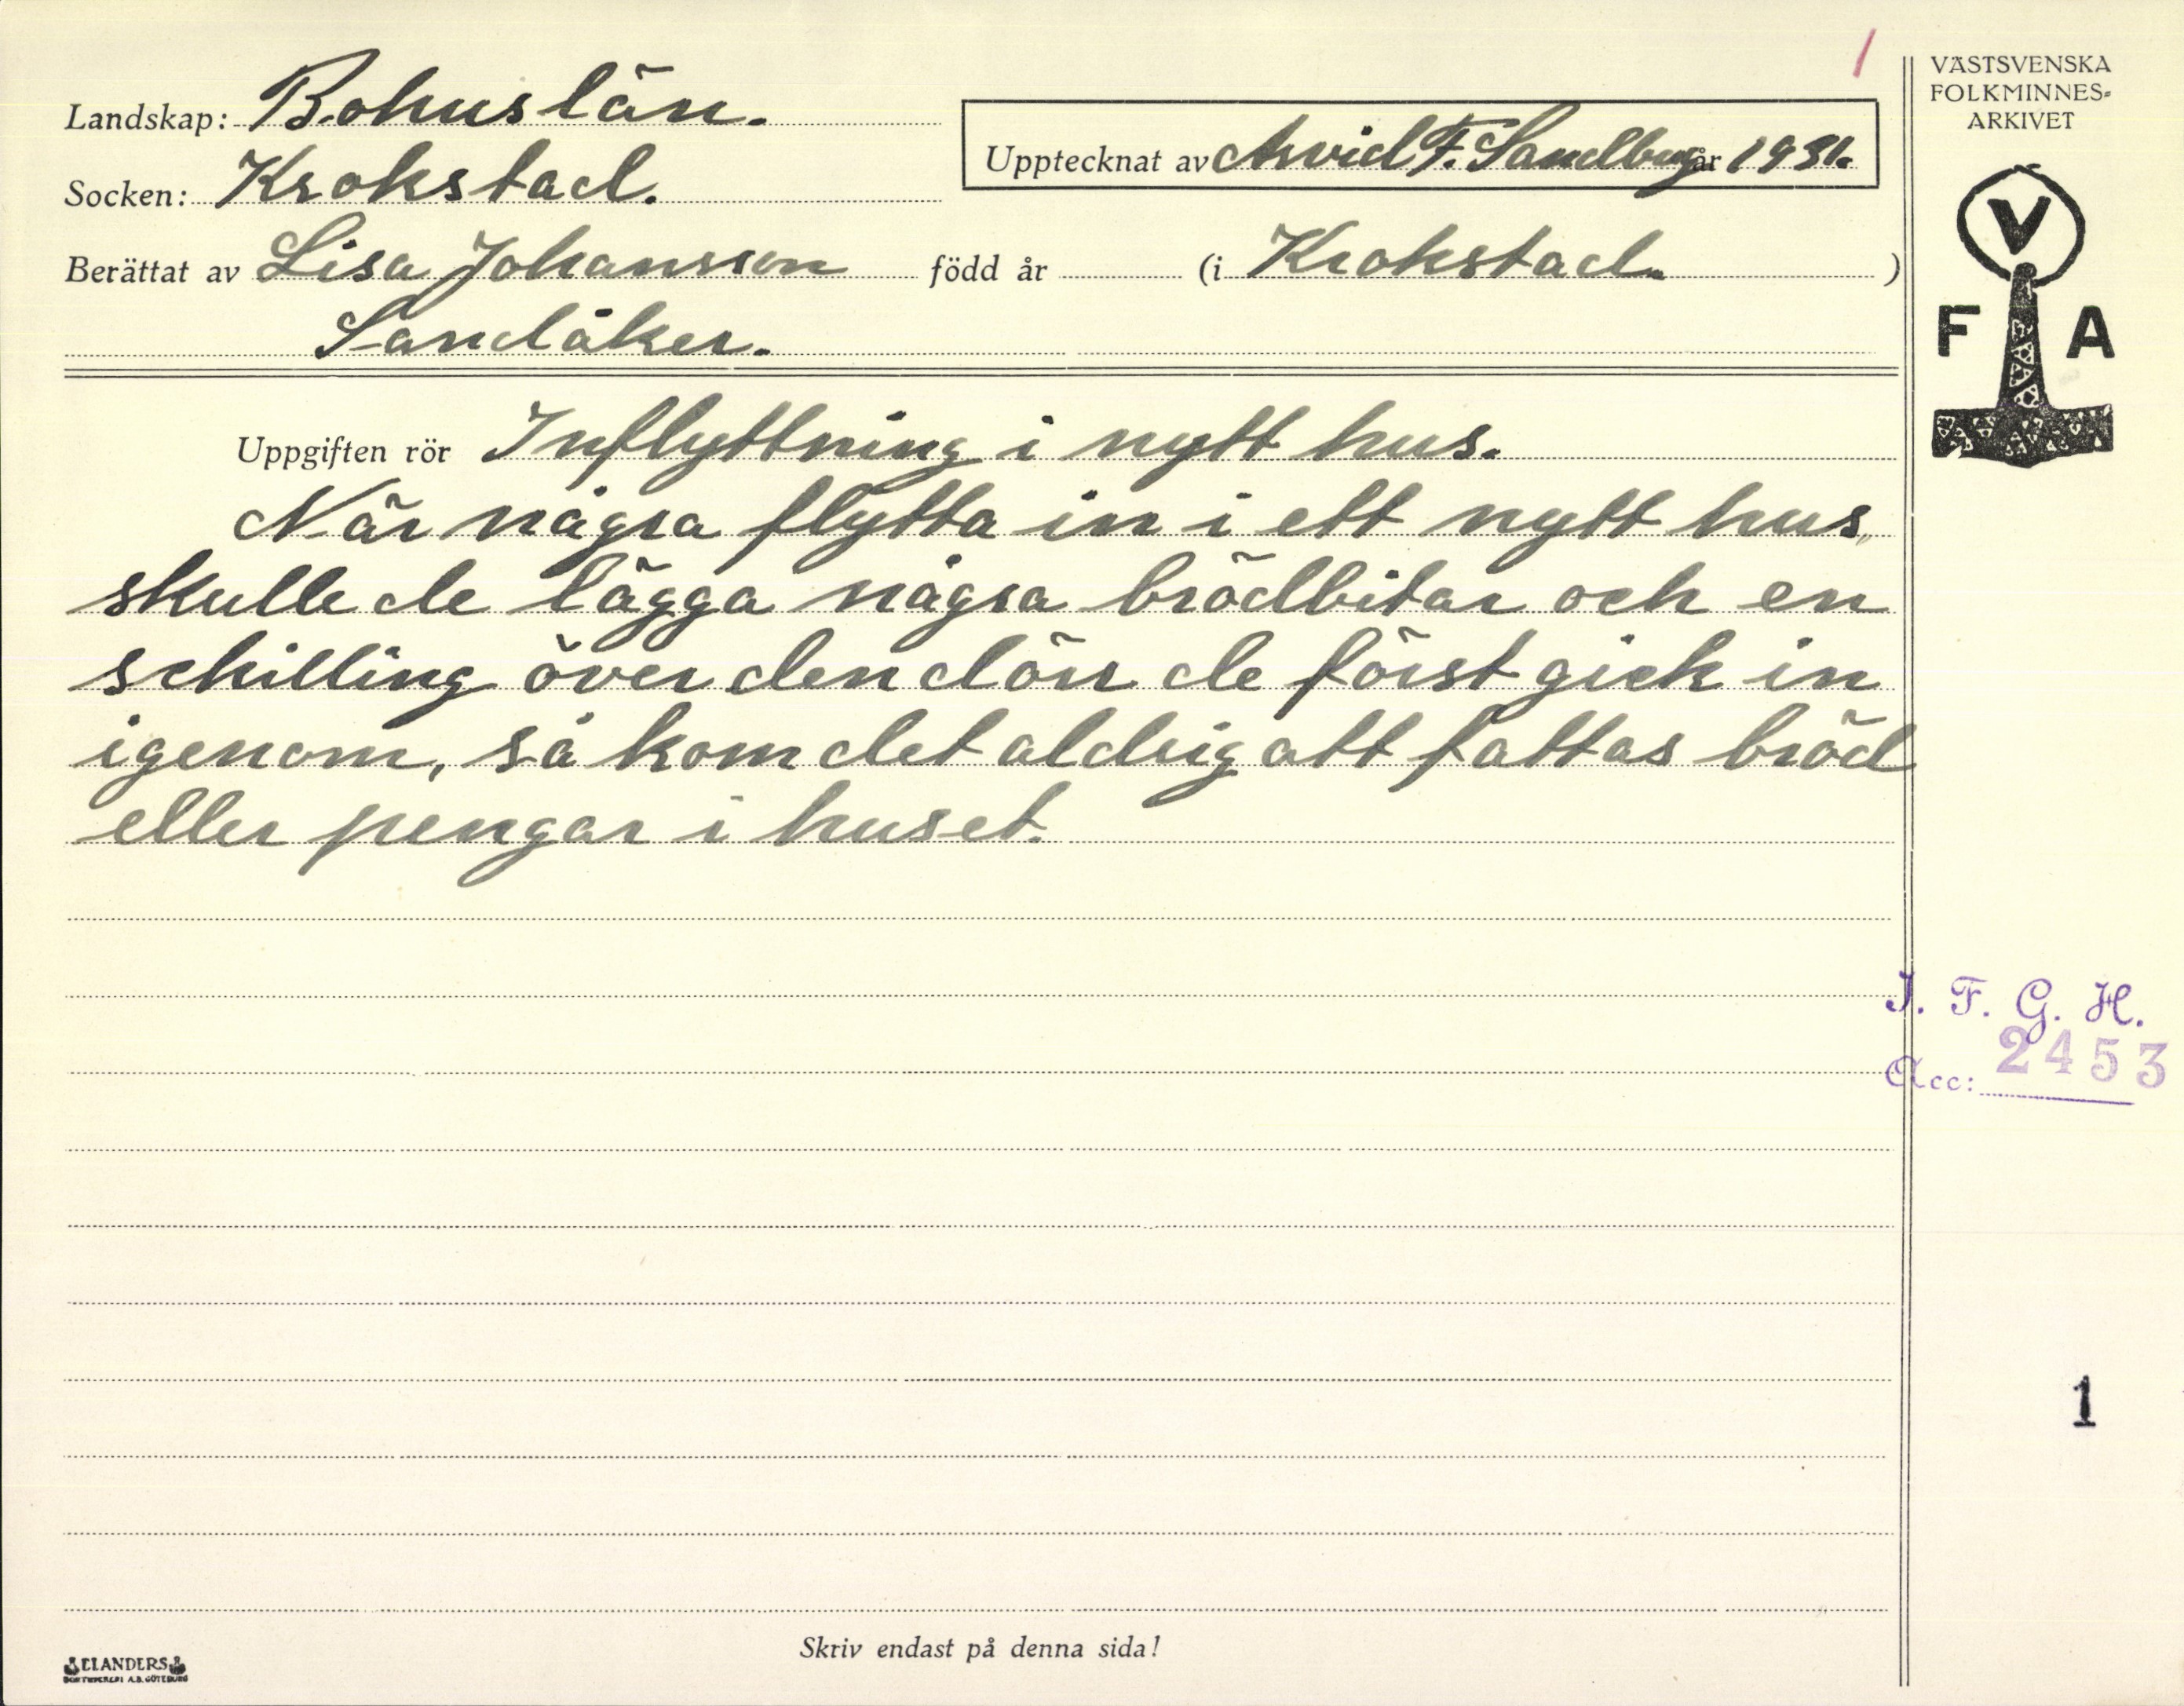 1
Landskap: Bohuslän.
Upptecknat av Arvid F. Sandberg år 1931.
Socken: Krokstad.
Berättat av Lisa Johansson född år (i Krokstad. )
Sandåker.
Uppgiften rör Inflyttning i nytt hus.
När några flytta in i ett nytt hus,
skulle de lägga några brödbitar och en
schilling över den dörr de först gick in
igenom, så kom det aldrig att fattas bröd
eller pengar i huset.
VÄSTSVENSKA
FOLKMINNES-
ARKIVET
V
F A
I. F. G. H.
Acc: 2453
1
Skriv endast på denna sida!
ELANDERS
BOKTRYCKERI A.B. GÖTEBORG